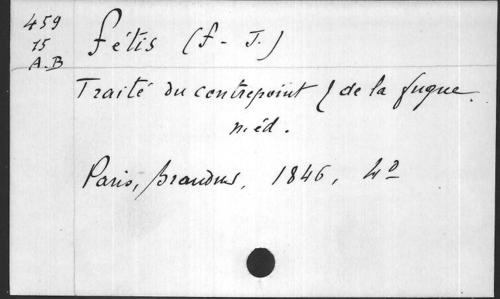 459
15
A.B
Fétis (F-J.)
Traité du contrepoint & de la fugue.
n. éd.
Paris, Brandus, 1846, 4º